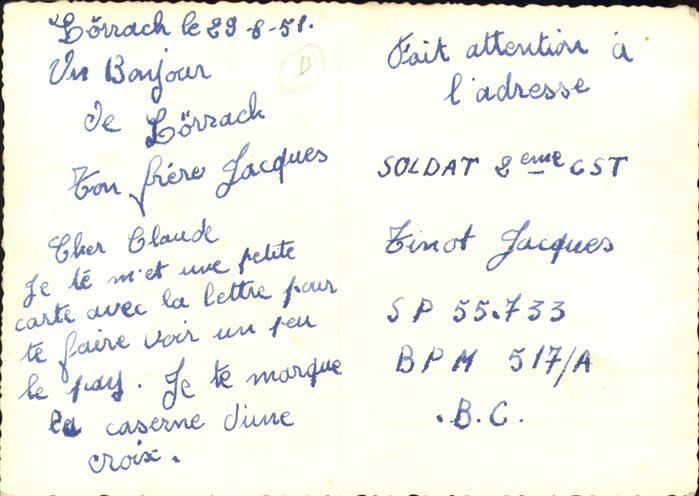 Lörrach le 29-8-51.
Un Bonjour
de Lörrach
Ton frère Jacques
Cher Claude
Je té m'et une petite
carte avec la lettre pour
te faire voir un peu
le pay. Je te marque
la caserne d'une
croix.
D
Fait attention à
l'adresse
SOLDAT 2eme CST
Tinot Jacques
SP 55.733
BPM 517/A
.B.C.